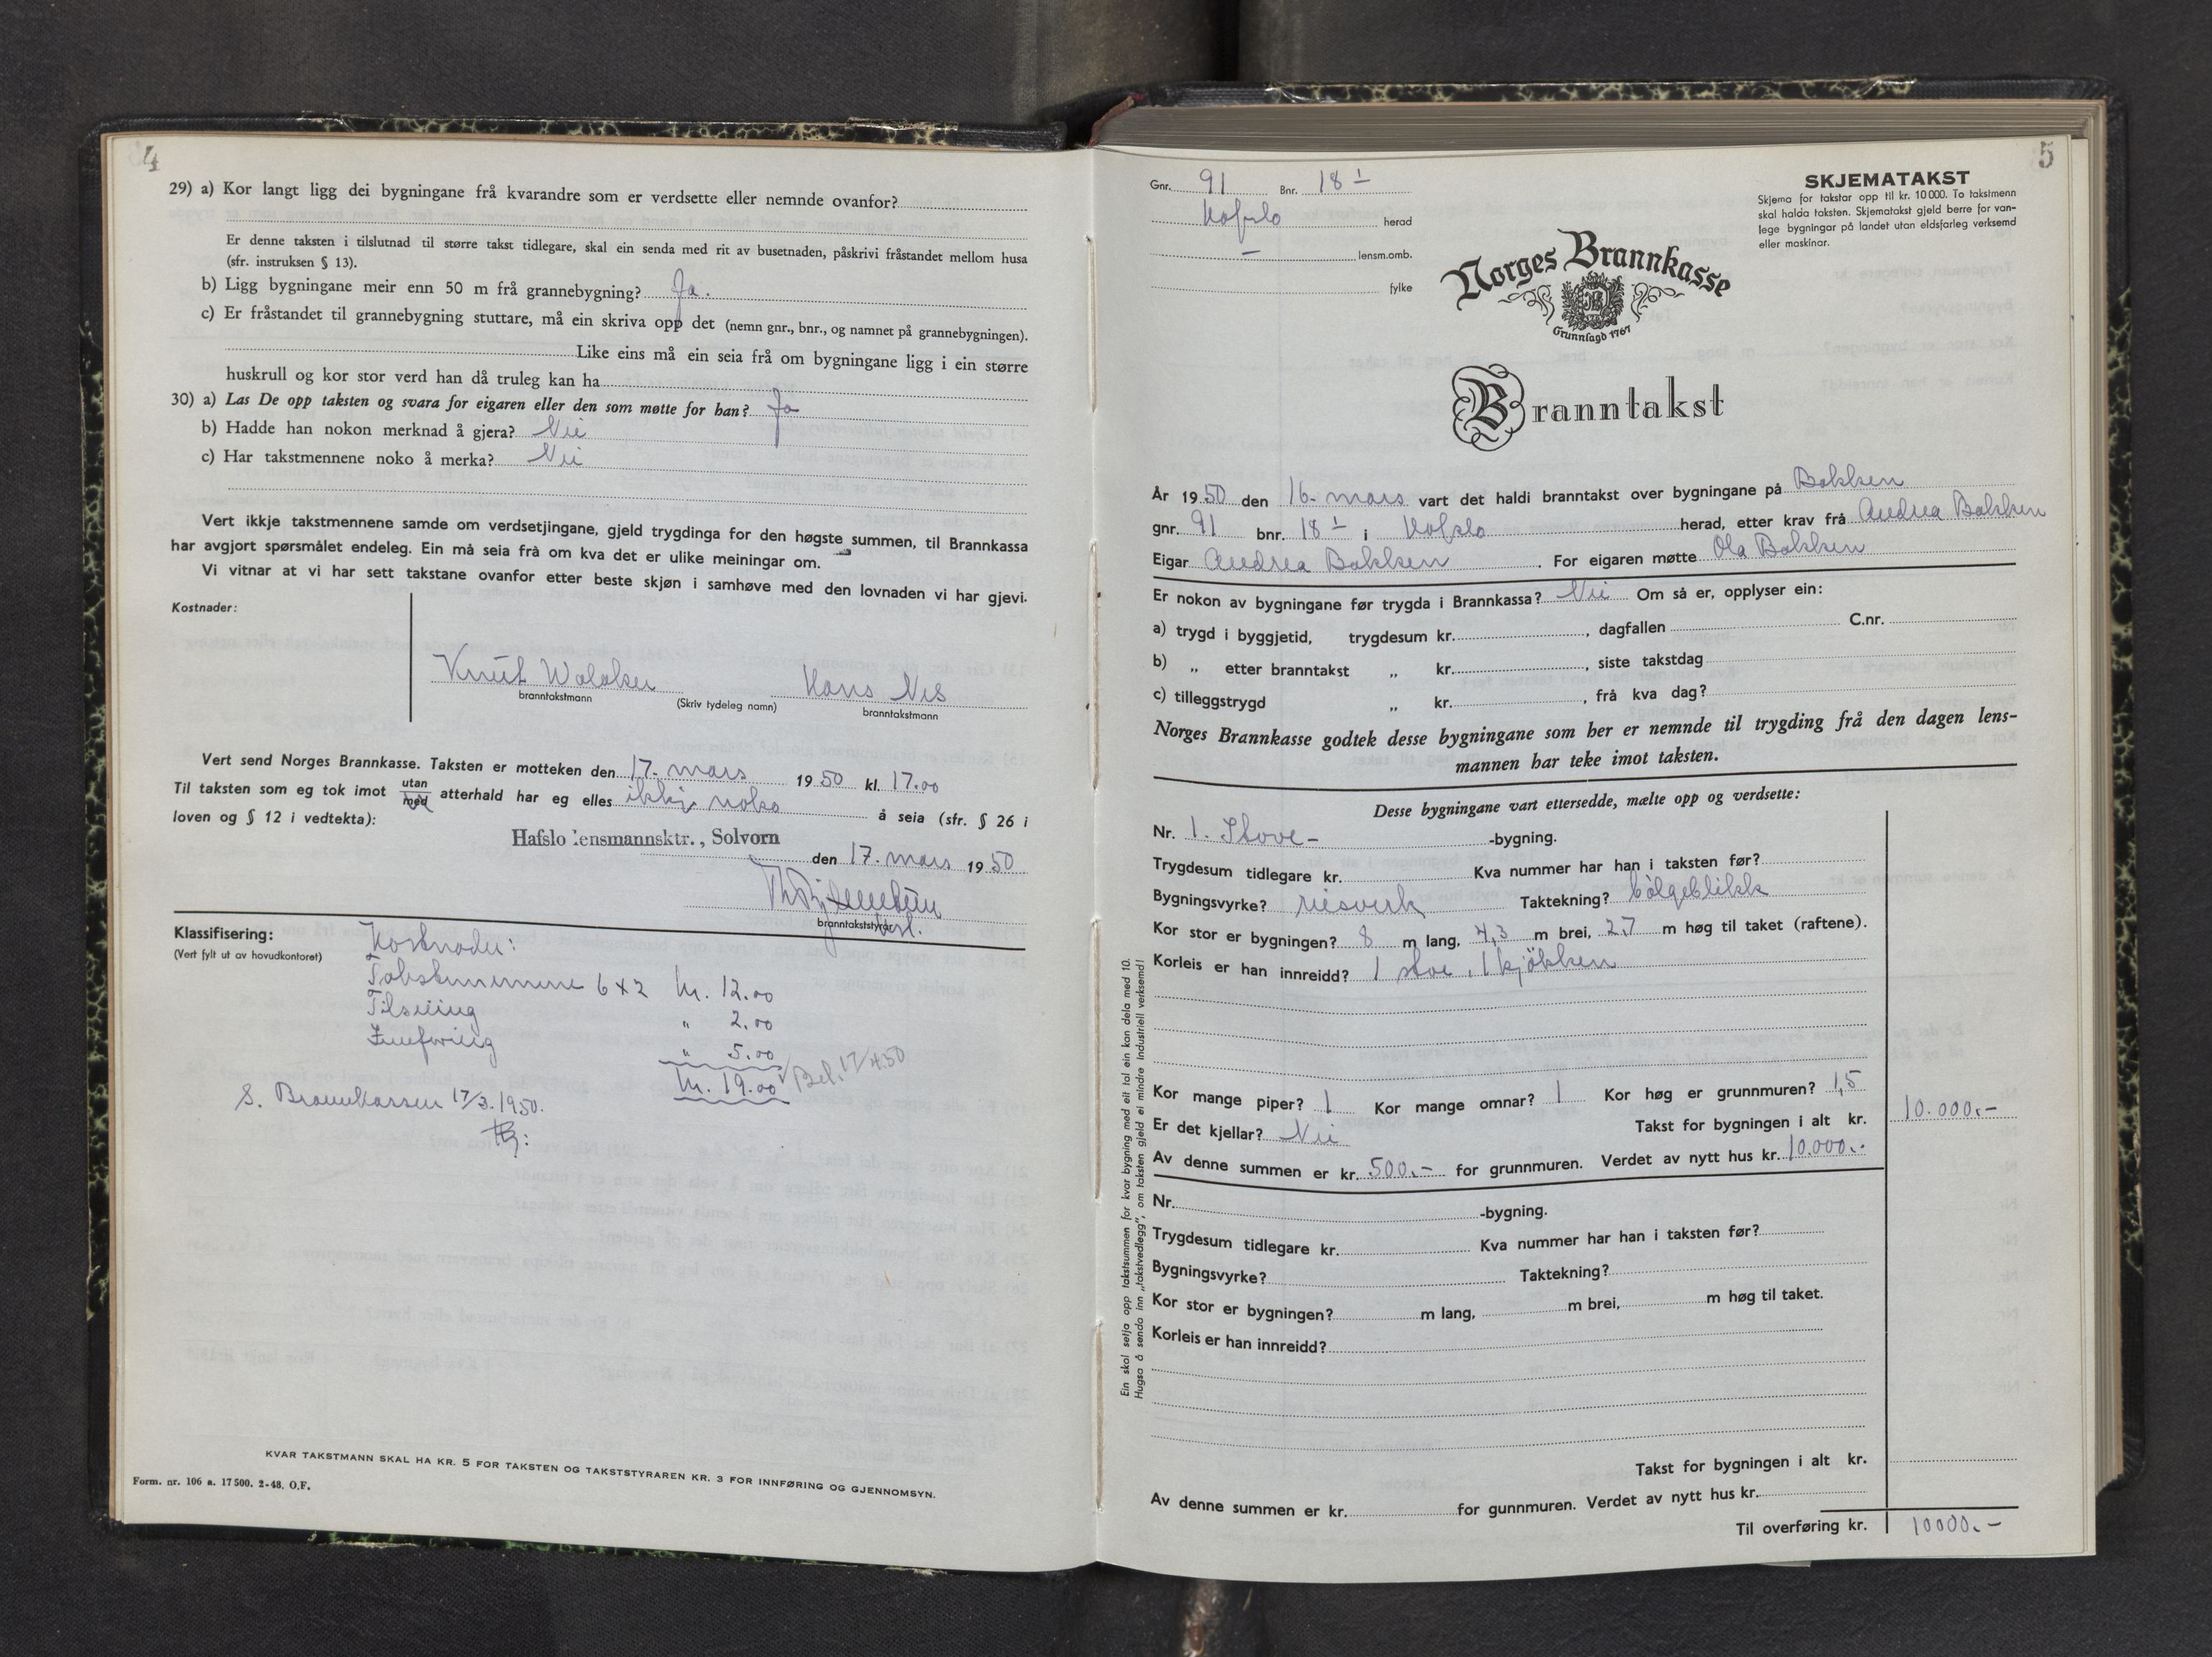 4
29) a) Kor langt ligg dei bygningane frå kvarandre som er verdsette eller nemnde ovanfor?
Er denne taksten i tilslutnad til større takst tidlegare, skal ein senda med rit av busetnaden, påskrivi fråstandet mellom husa
(sfr. instruksen § 13).
b) Ligg bygningane meir enn 50 m frå grannebygning? Ja.
c) Er fråstandet til grannebygning stuttare, må ein skriva opp det (nemn gnr., bnr., og namnet på grannebygningen).
Like eins må ein seia frå om bygningane ligg i ein større
huskrull og kor stor verd han då truleg kan ha
30) a) Las De opp taksten og svara for eigaren eller den som møtte for han? Ja
b) Hadde han nokon merknad å gjera? Nei
c) Har takstmennene noko å merka? Nei
Vert ikkje takstmennene samde om verdsetjingane, gjeld trygdinga for den høgste summen, til Brannkassa
har avgjort spørsmålet endeleg. Ein må seia frå om kva det er ulike meiningar om.
Vi vitnar at vi har sett takstane ovanfor etter beste skjøn i samhøve med den lovnaden vi har gjevi.
Kostnader:
Knut Walaker Hans Nes
branntakstmann (Skriv tydeleg namn) branntakstmann
Vert send Norges Brannkasse. Taksten er motteken den 17. mars 1950 kl. 17.00
Til taksten som eg tok imot utan/med atterhald har eg elles ikkje noko å seia (sfr. § 26 i
loven og § 12 i vedtekta):
Hafslo lensmannsktr., Solvorn
den 17. mars 1950
branntakststyrar
Klassifisering:
(Vert fylt ut av hovudkontoret)
Kostnader:
Takstmennene 6 x 2 kr. 12.00
Tilseiing " 2.00
Innføring " 5.00
kr. 19.00 Bet. 17/4.50
S. Brannkassen 17/3.1950.
KVAR TAKSTMANN SKAL HA KR. 5 FOR TAKSTEN OG TAKSTSTYRAREN KR. 3 FOR INNFØRING OG GJENNOMSYN.
Form. nr. 106 a. 17500. 2-48. O.F.
5
Gnr. 91 Bnr. 18 1
Hafslo herad
– lensm.omb.
fylke
SKJEMATAKST
Skjema for takstar opp til kr. 10000. To takstmenn
skal halda taksten. Skjematakst gjeld berre for van-
lege bygningar på landet utan eldsfarleg verksemd
eller maskinar.
Norges Brannkasse
Grunnlagd 1767
Branntakst
År 1950 den 16. mars vart det haldi branntakst over bygningane på Bakken
gnr. 91 bnr. 18 1 i Hafslo herad, etter krav frå Andrea Bakken
Eigar Andrea Bakken. For eigaren møtte Ola Bakken
Er nokon av bygningane før trygda i Brannkassa? Nei Om så er, opplyser ein:
a) trygd i byggjetid, trygdesum kr. , dagfallen C.nr.
b) „ etter branntakst „ kr. , siste takstdag
c) tilleggstrygd „ kr. , frå kva dag?
Norges Brannkasse godtek desse bygningane som her er nemnde til trygding frå den dagen lens-
mannen har teke imot taksten.
Desse bygningane vart ettersedde, mælte opp og verdsette:
Nr. 1. Stove- -bygning.
Trygdesum tidlegare kr. Kva nummer har han i taksten før?
Bygningsvyrke? reisverk Taktekning? bølgeblikk
Kor stor er bygningen? 8 m lang, 4,3 m brei, 2,7 m høg til taket (raftene).
Korleis er han innreidd? 1 stove, 1 kjøkken
Kor mange piper? 1 Kor mange omnar? 1 Kor høg er grunnmuren? 1,5
Er det kjellar? Nei Takst for bygningen i alt kr. 10.000.-
Av denne summen er kr. 500.- for grunnmuren. Verdet av nytt hus kr. 10.000.-
Nr. -bygning.
Trygdesum tidlegare kr. Kva nummer har han i taksten før?
Bygningsvyrke? Taktekning?
Kor stor er bygningen? m lang, m brei, m høg til taket.
Korleis er han innreidd?
Takst for bygningen i alt kr.
Av denne summen er kr. for gunnmuren. Verdet av nytt hus kr.
Til overføring kr. 10000.-
Ein skal setja opp takstsummen for kvar bygning med eit tal ein kan dela med 10.
Hugsa å senda inn „takstvedlegg", om taksten gjeld ei mindre industriell verksemd!